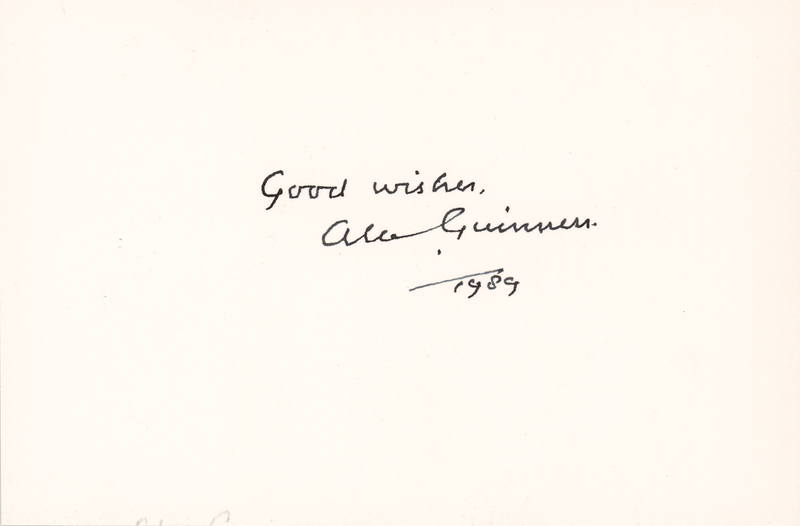 Good wishes,
Alec Guinness.
1989